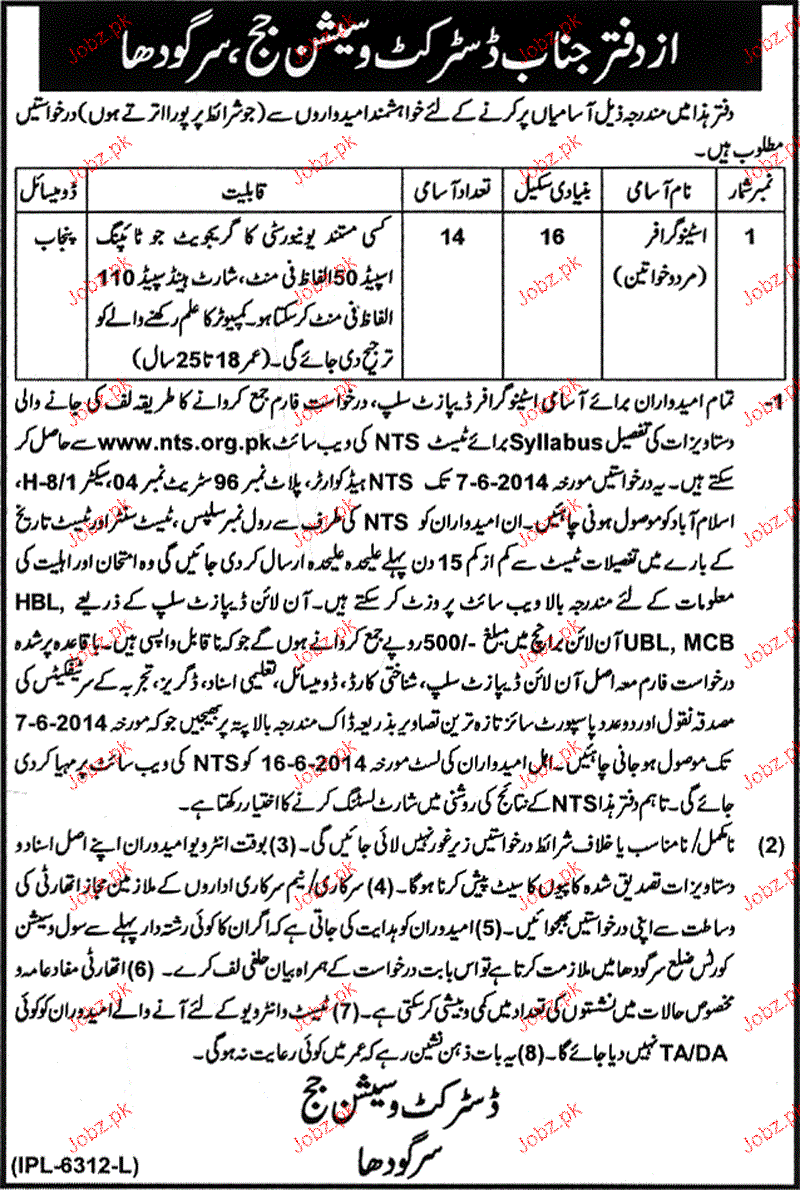 از دفتر جناب ڈسٹرکٹ و سیشن جج، سرگودھا
دفتر ہذا میں مندرجہ ذیل آسامیاں پر کرنے کے لئے خواہشمند امیدواروں سے (جو شرائط پر پورا اترتے ہوں) درخواستیں
مطلوب ہیں۔
نمبر شمار نام آسامی بنیادی سکیل تعداد آسامی قابلیت ڈومیسائل
1 اسٹینوگرافر 16 14 کسی مستند یونیورسٹی کا گریجویٹ جو ٹائپنگ پنجاب
(مرد و خواتین) اسپیڈ 50 الفاظ فی منٹ، شارٹ ہینڈ سپیڈ 110
الفاظ فی منٹ کر سکتا ہو۔ کمپیوٹر کا علم رکھنے والے کو
ترجیح دی جائے گی۔ (عمر 18 تا 25 سال)
1- تمام امیدواران برائے آسامی اسٹینوگرافر ڈیپازٹ سلپ، درخواست فارم جمع کروانے کا طریقہ لف کی جانے والی
دستاویزات کی تفصیل Syllabus برائے ٹیسٹ NTS کی ویب سائٹ www.nts.org.pk سے حاصل کر
سکتے ہیں۔ یہ درخواستیں مورخہ 7-6-2014 تک NTS ہیڈ کوارٹر، پلاٹ نمبر 96 سٹریٹ نمبر 04، سیکٹر H-8/1،
اسلام آباد کو موصول ہونی چاہئیں۔ ان امیدواران کو NTS کی طرف سے رول نمبر سلپس، ٹیسٹ سنٹر اور ٹیسٹ تاریخ
کے بارے میں تفصیلات ٹیسٹ سے کم از کم 15 دن پہلے علیحدہ علیحدہ ارسال کر دی جائیں گی وہ امتحان اور اہلیت کی
معلومات کے لئے مندرجہ بالا ویب سائٹ پر وزٹ کر سکتے ہیں۔ آن لائن ڈیپازٹ سلپ کے ذریعے HBL,
UBL, MCB آن لائن برانچ میں مبلغ -/500 روپے جمع کروانے ہوں گے جو کہ ناقابل واپسی ہیں۔ باقاعدہ پر شدہ
درخواست فارم معہ اصل آن لائن ڈیپازٹ سلپ، شناختی کارڈ، ڈومیسائل، تعلیمی اسناد، ڈگریز، تجربہ کے سرٹیفکیٹس کی
مصدقہ نقول اور دو عدد پاسپورٹ سائز تازہ ترین تصاویر بذریعہ ڈاک مندرجہ بالا پتہ پر بھیجیں جو کہ مورخہ 7-6-2014
تک موصول ہو جانی چاہئیں۔ اہل امیدواران کی لسٹ مورخہ 16-6-2014 کو NTS کی ویب سائٹ پر مہیا کر دی
جائے گی۔ تاہم دفتر ہذا NTS کے نتائج کی روشنی میں شارٹ لسٹنگ کرنے کا اختیار رکھتا ہے۔
(2) نامکمل/ نامناسب یا خلاف شرائط درخواستیں زیر غور نہیں لائی جائیں گی۔ (3) بوقت انٹرویو امیدوران اپنے اصل اسناد و
دستاویزات تصدیق شدہ کاپیوں کا سیٹ پیش کرنا ہوگا۔ (4) سرکاری/ نیم سرکاری اداروں کے ملازمین مجاز اتھارٹی کی
وساطت سے اپنی درخواستیں بھجوائیں۔ (5) امیدوران کو ہدایت کی جاتی ہے کہ اگر ان کا کوئی رشتہ دار پہلے سے سول و سیشن
کورٹس ضلع سرگودھا میں ملازمت کرتا ہے تو اس بابت درخواست کے ہمراہ بیان حلفی لف کرے۔ (6) اتھارٹی مفاد عامہ و
مخصوص حالات میں نشستوں کی تعداد میں کمی و بیشی کر سکتی ہے۔ (7) ٹیسٹ و انٹرویو کے لئے آنے والے امیدوران کو کوئی
TA/DA نہیں دیا جائے گا۔ (8) یہ بات ذہن نشین رہے کہ عمر میں کوئی رعایت نہ ہوگی۔
ڈسٹرکٹ و سیشن جج
سرگودھا
(IPL-6312-L)
Jobz.pk